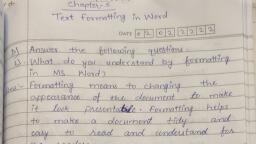 Chapter-5
Text Formatting in Word
DATE 0 2 0 2 2 2 2 2
A) Answer the following questions.
1) What do you understand by formatting
in MS Word?
Ans:- Formatting means to changing the
appearance of the document to make
it look presentable. Formatting helps
to make a document tidy and
easy to read and understand for